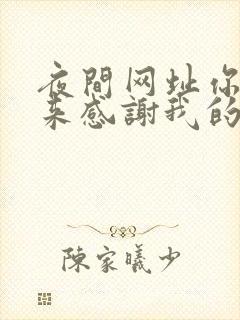 夜間网址你
来感謝我的
陳家曦少